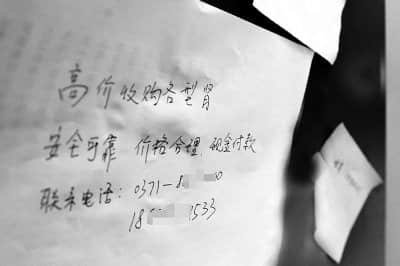 高价收购各型肾
安全可靠 价格合理、现金付款
联系电话：0371-8 0
18 1533